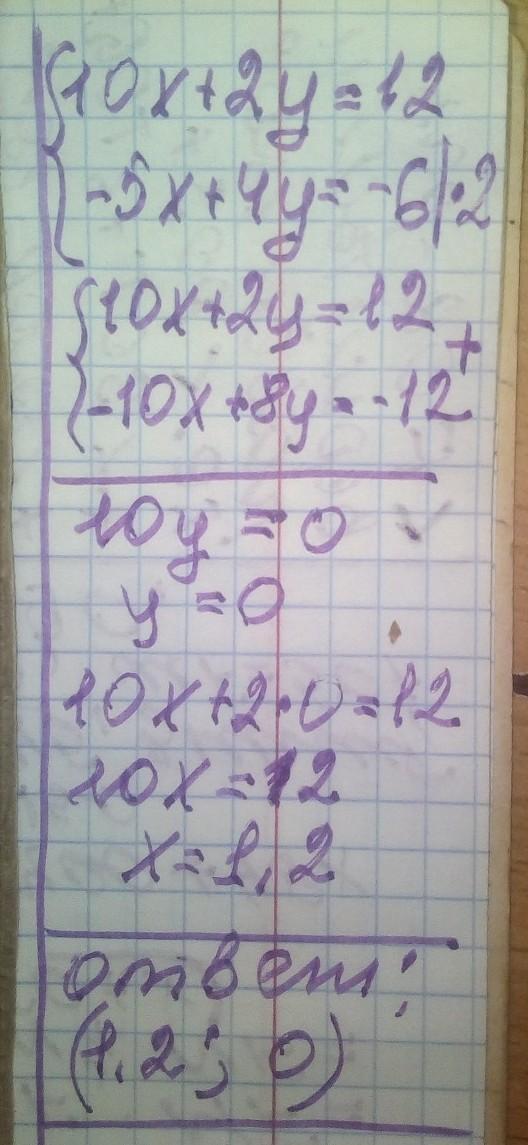 {10x+2y=12
{-5x+4y=-6|·2
{10x+2y=12
+
{-10x+8y=-12
10y=0
y=0
10x+2·0=12
10x=12
x=1,2
ответ:
(1,2; 0)